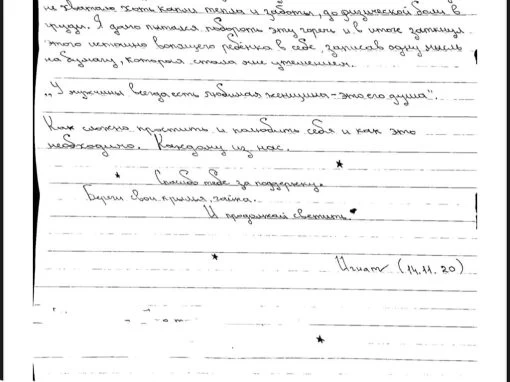 не хватало хоть капли тепла и заботы, до физической боли в
груди. Я давно пытался побороть эту горечь и в итоге заткнул
этого истошно вопящего ребёнка в себе, записав одну мысль
на бумагу, которая стала мне утешением.
„У мужчины всегда есть любимая женщина - это его душа".
Как сложно простить и полюбить себя и как это
необходимо. Каждому из нас.
Спасибо тебе за поддержку.
Береги свои крылья, чайка.
И продолжай светить.
Игнат (14.11.20)